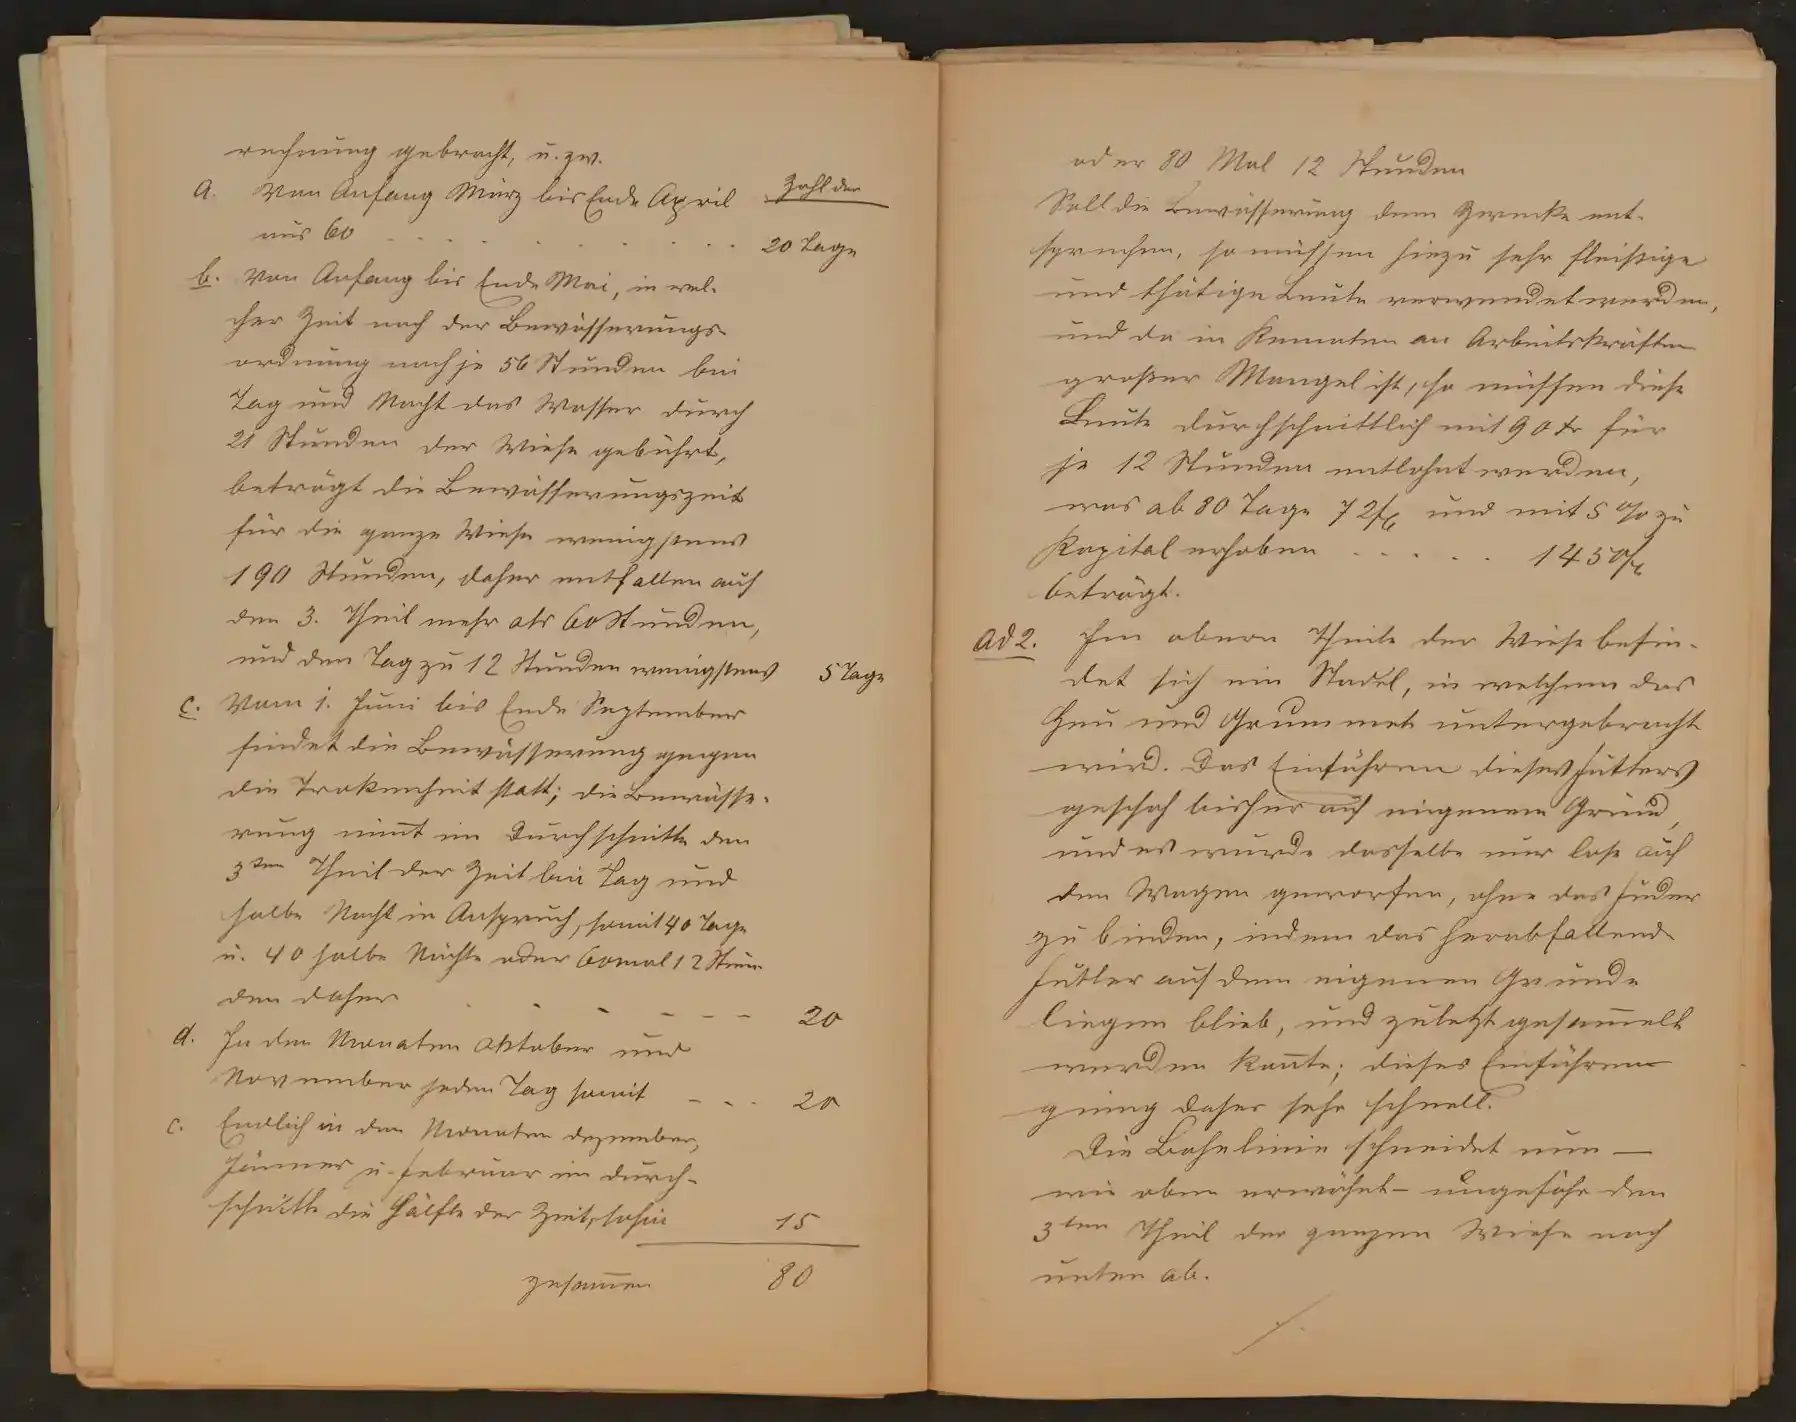 rechnung gebracht, u. zw.
Zahl der
a. Von Anfang März bis Ende April
aus 60 . . . . . . . . . . 20 Tage
b. Von Anfang bis Ende Mai, in wel-
cher Zeit nach der Bewässerungs-
ordnung nach je 56 Stunden bei
Tag und Nacht das Wasser durch
21 Stunden der Wiese gebührt,
beträgt die Bewässerungszeit
für die ganze Wiese wenigstens
190 Stunden, daher entfallen auf
den 3. Theil mehr als 60 Stunden,
und den Tag zu 12 Stunden wenigstens 5 Tage
c. Vom 1. Juni bis Ende September
findet die Bewässerung gegen
die Trokenheit statt; die Bewässe-
rung nim̅t im Durchschnitte den
3ten Theil der Zeit bei Tag und
halbe Nacht in Anspruch, somit 40 Tage
u. 40 halbe Nächte oder 60 mal 12 Stun
den daher - - - - - - 20
d. In den Monaten Oktober und
November jeden Tag somit - - - 20
e. Endlich in den Monaten Dezember,
Jänner u. Februar im Durch-
schnitte die Hälfte der Zeit, sohin 15
zusam̅en 80
oder 80 Mal 12 Stunden
Soll die Bewässerung dem Zwecke ent-
sprechen, so müssen hiezu sehr fleißige
und thätige Leute verwendet werden,
und da in Kematen an Arbeitskräften
großer Mangel ist, so müssen diese
Leute durchschnittlich mit 90 kr für
je 12 Stunden entlohnt werden,
was ab 80 Tage 72 fl und mit 5 % zu
Kapital erhoben . . . . . 1450 fl
beträgt.
ad 2. Im obern Theile der Wiese befin-
det sich ein Stadel, in welchem das
Heu und Grummet untergebracht
wird. Das Einführen dieses Futters
geschah bisher auf eigenem Grund,
und es wurde dasselbe nur lose auf
den Wagen geworfen, ohne das Fuder
zu binden, indem das herabfallende
Futter auf dem eigenen Grunde
liegen blieb, und zuletzt gesam̅elt
werden kon̅te; dieses Einführen
gieng daher sehr schnell.
Die Bahnlinie schneidet nun —
wie oben erwähnt — ungefähr den
3ten Theil der ganzen Wiese nach
unten ab.